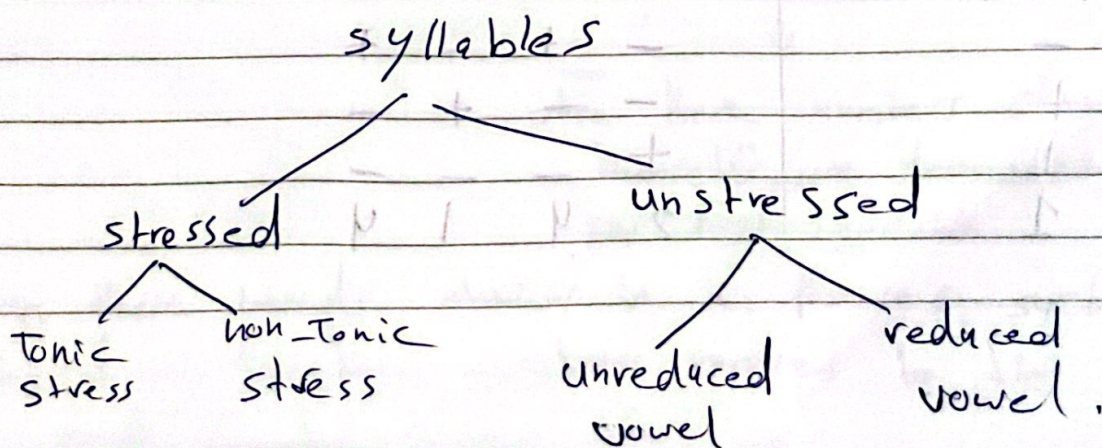 syllables
stressed
unstressed
Tonic
stress
non-Tonic
stress
unreduced
vowel
reduced
vowel.